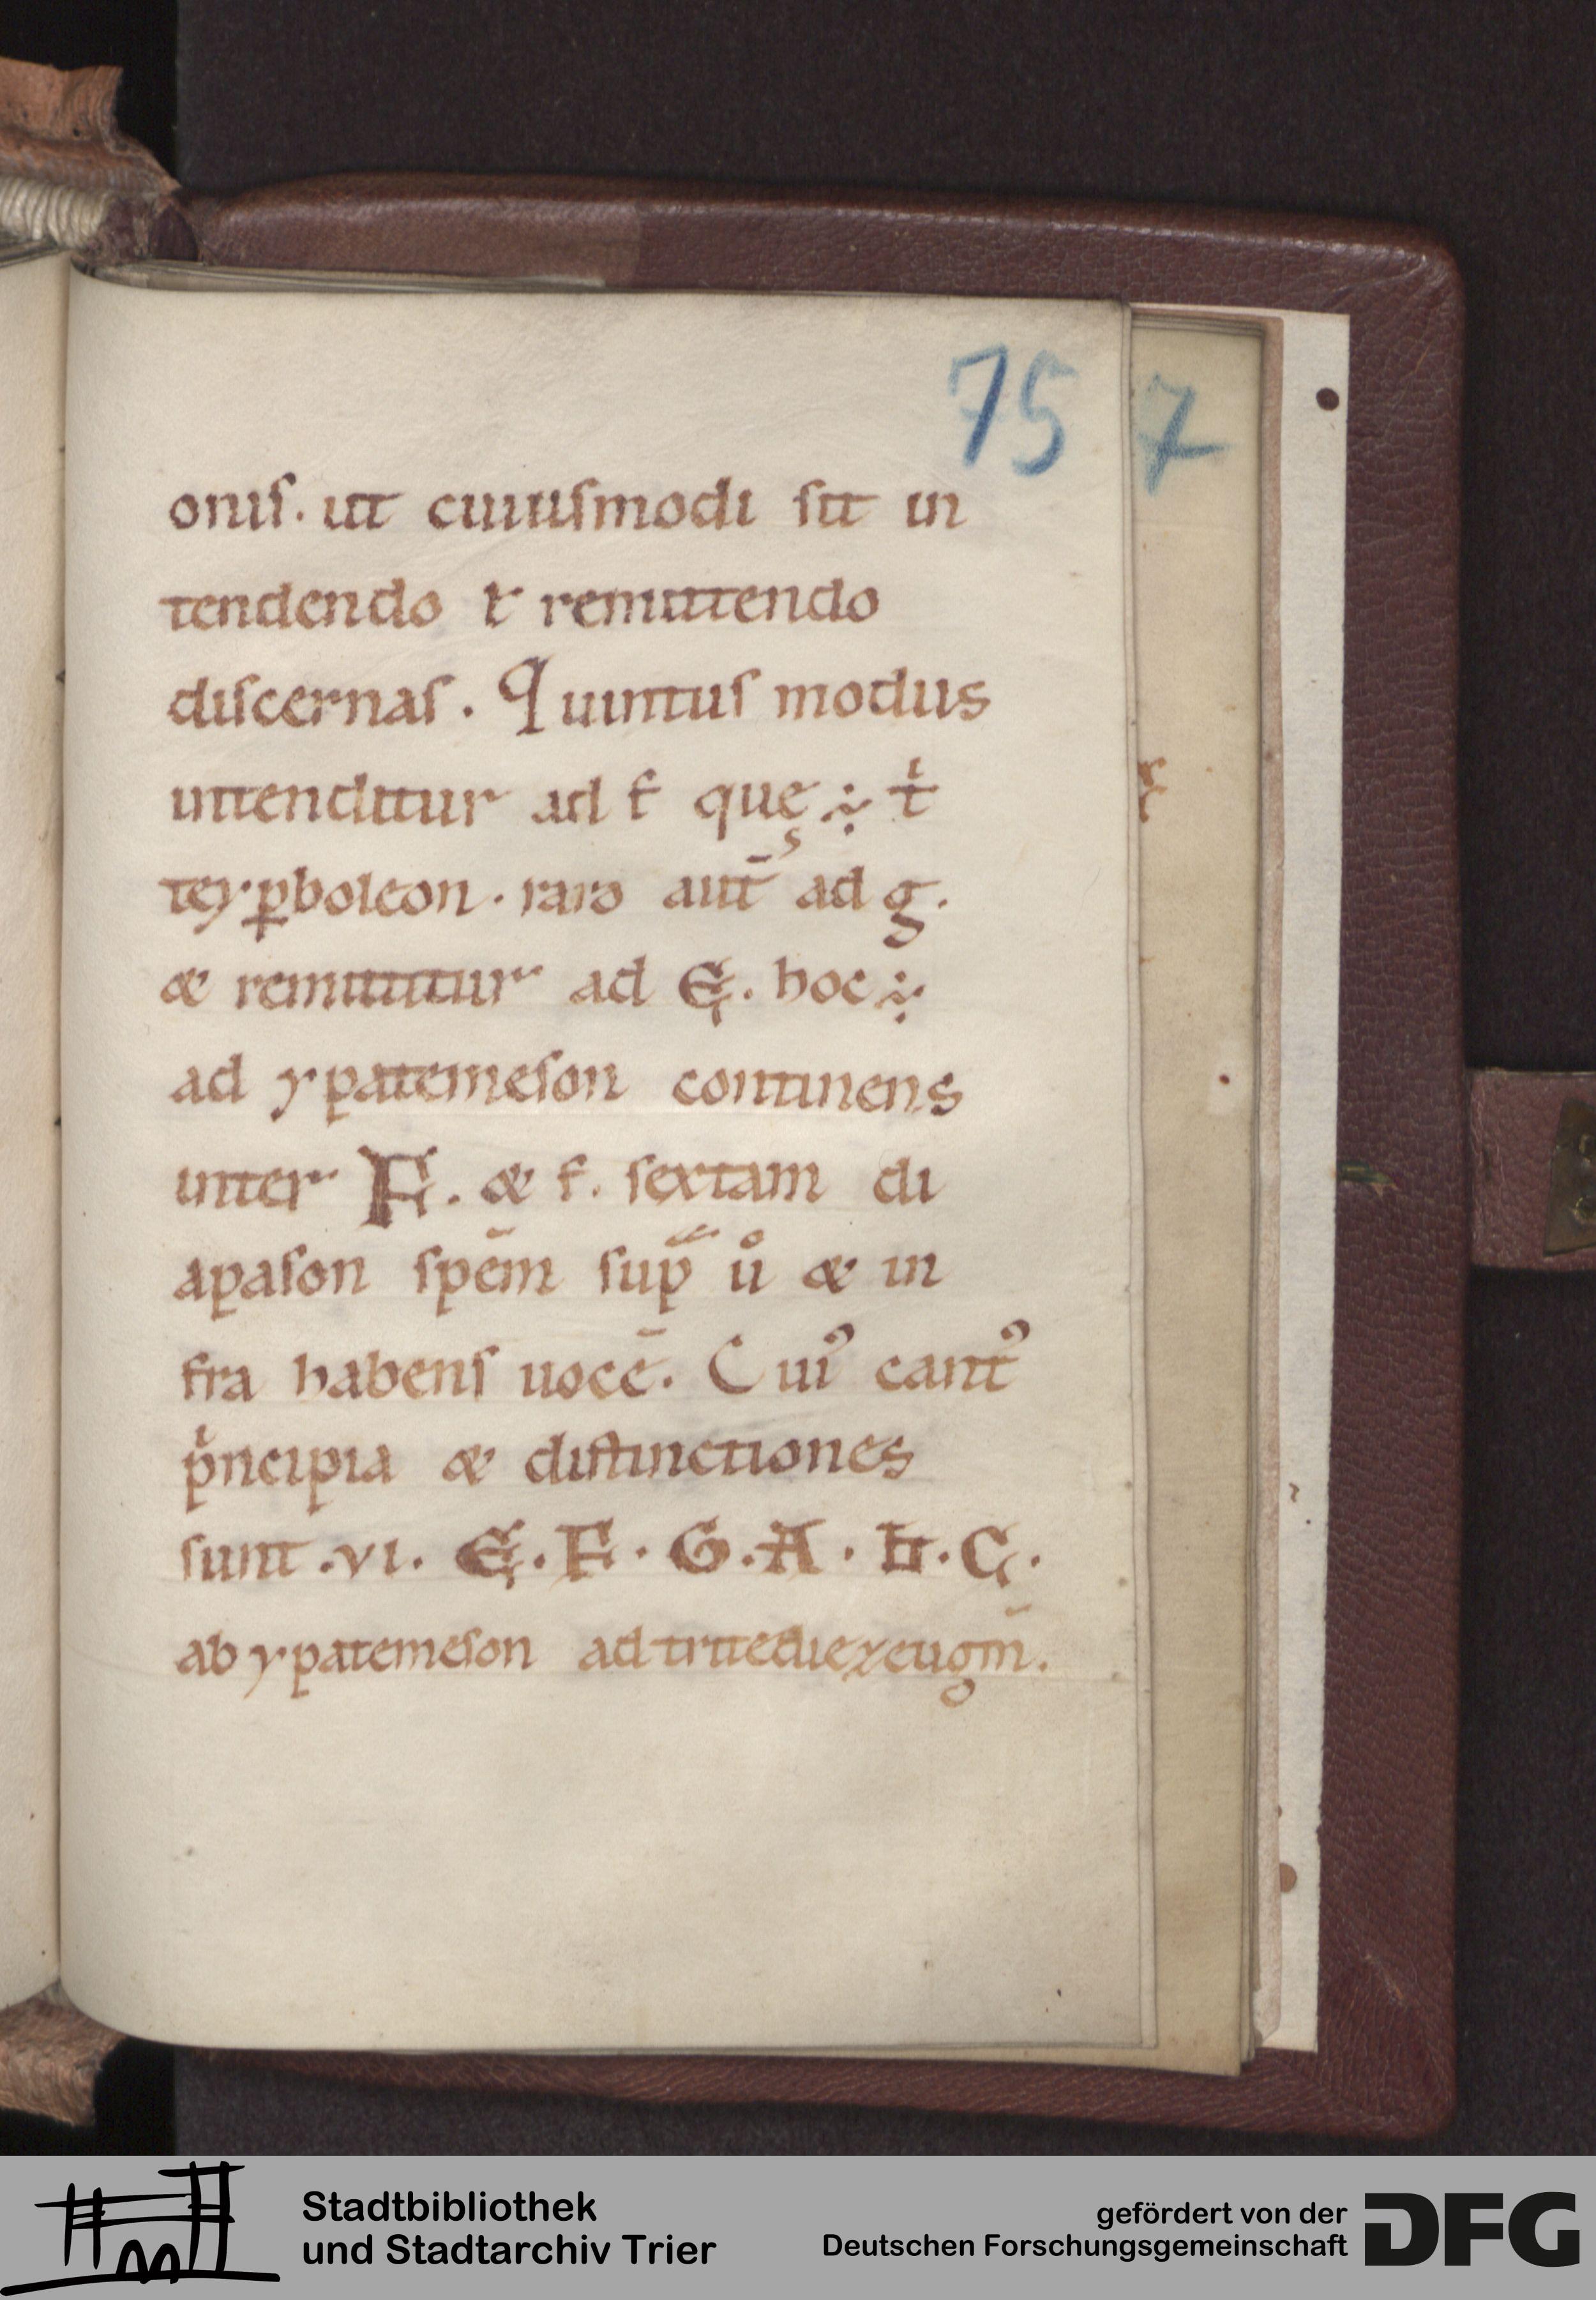 75 7
onıſ. ut cuıuſmodi ſit in
tendendo ł remittendo
diſcernaſ. Quintuſ modus
intenditur ad f quę ÷ t̍
teyꝑboleon. raro aut̄ ad g.
& remittitur ad E. hoc ÷
ad ypatemeſon continens
inter F. & f. ſextam di
apaſon ſpēm ſup̄ ů & in
fra habenſ uocē. Cuiꝰ cantꝰ
p̍ncipia & diſtinctiones
ſunt .vi. E. F. G. A. ♮. C.
ab ypatemeſon ad tritediezeugm̄.
Stadtbibliothek
und Stadtarchiv Trier
gefördert von der
Deutschen Forschungsgemeinschaft
DFG